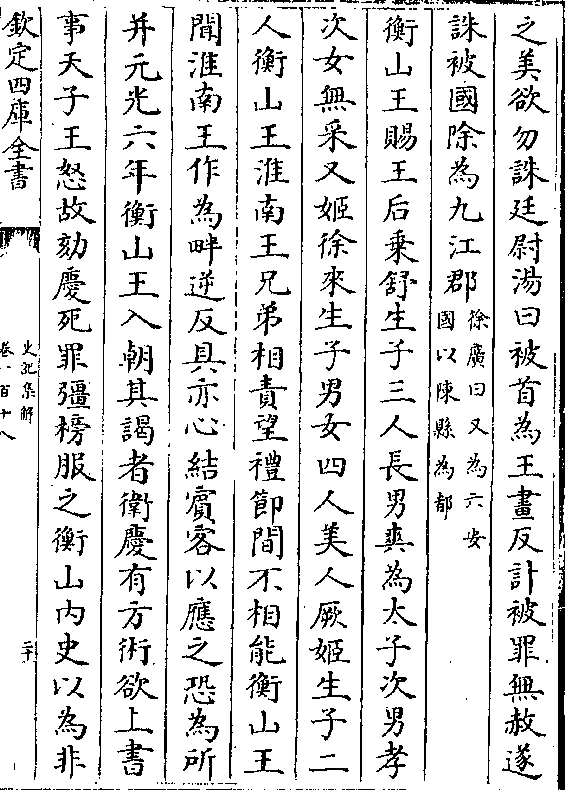 之美欲勿誅廷尉湯曰被首為王畫反計被罪無赦遂
誅被國除為九江郡徐廣曰又為六安
國以陳縣為都
衡山王賜王后乗舒生子三人長男爽為太子次男孝
次女無采又姬徐來生子男女四人美人厥姬生子二
人衡山王淮南王兄弟相責望禮節間不相能衡山王
聞淮南王作為畔逆反具亦心結賔客以應之恐為所
并元光六年衡山王入朝其謁者衛慶有方術欲上書
事天子王怒故劾慶死罪彊榜服之衡山內史以為非
欽定四庫全書
史記集解
卷一百十八